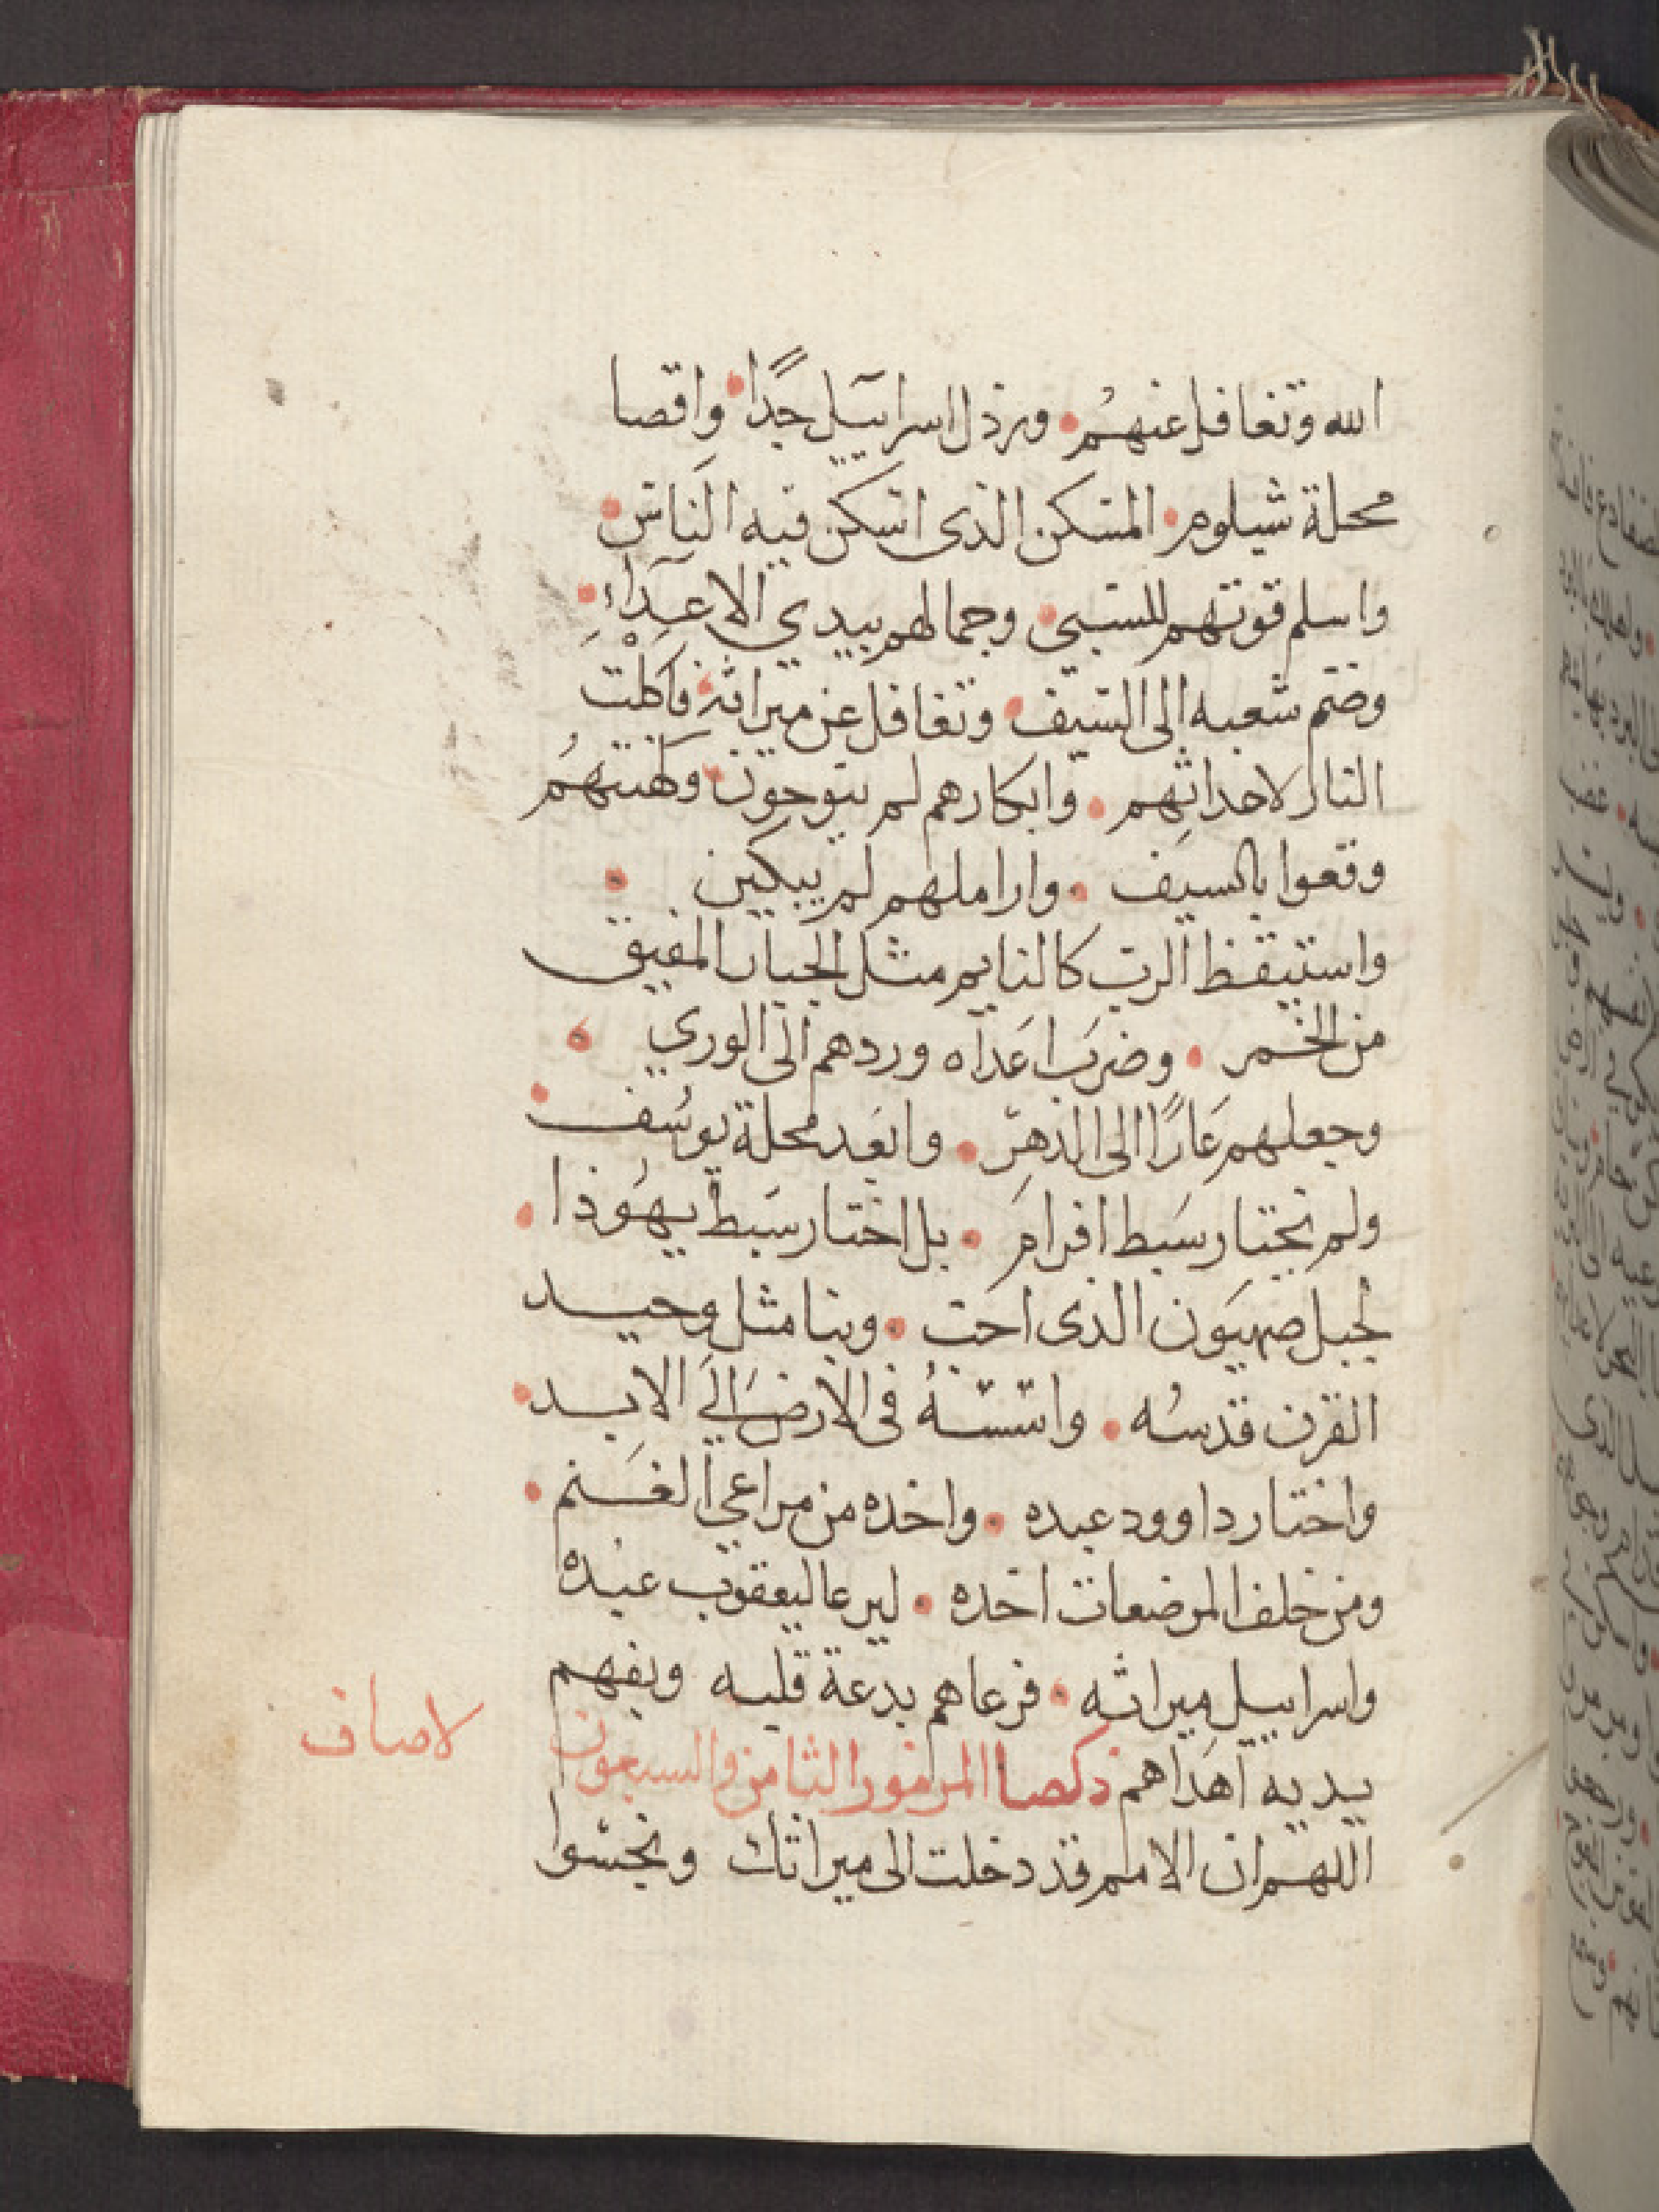 الله وتغافل عنهُم • ورذل اسراييل جدًا • واقصا
محلة شيلوم • المسكن الذى اسكن فيه الناس •
واسلم قوتهم للسبي • وجمالهم بيدي الاعدآءِ •
وضم شعبه الى السيف • وتغافل عن ميراثه • فاكلْت
النار لاحداثهم • وابكارهم لم ينوحون • وكهنتهُم
وقعوا بالسيف • واراملهم لم يبكين •
واستيقظ الرب كالنايم مثل الجبار المفيق
من الخمر • وضرب اعداه وردهم الى الوري •
وجعلهم عارًا الى الدهر • وابعد محلة يوسُف •
ولم يختار سبط افرام • بل اختار سبط يهُوذا •
لجبل صهيون الذى احب • وبنا مثل وحيد
القرن قدسُه • واسسهُ فى الارض الي الابد •
واختار داوود عبده • واخده من مراعي الغنم •
ومن خلف المرضعات اخده • ليرعا ليعقوب عبده
واسراييل ميراثه • فرعاهم بدعة قلبه وبفهم
يديه اهداهم ذكصا المزمور الثامن والسبعون
لاصاف
اللهم ان الامم قد دخلت الى ميراثك ونجسوا